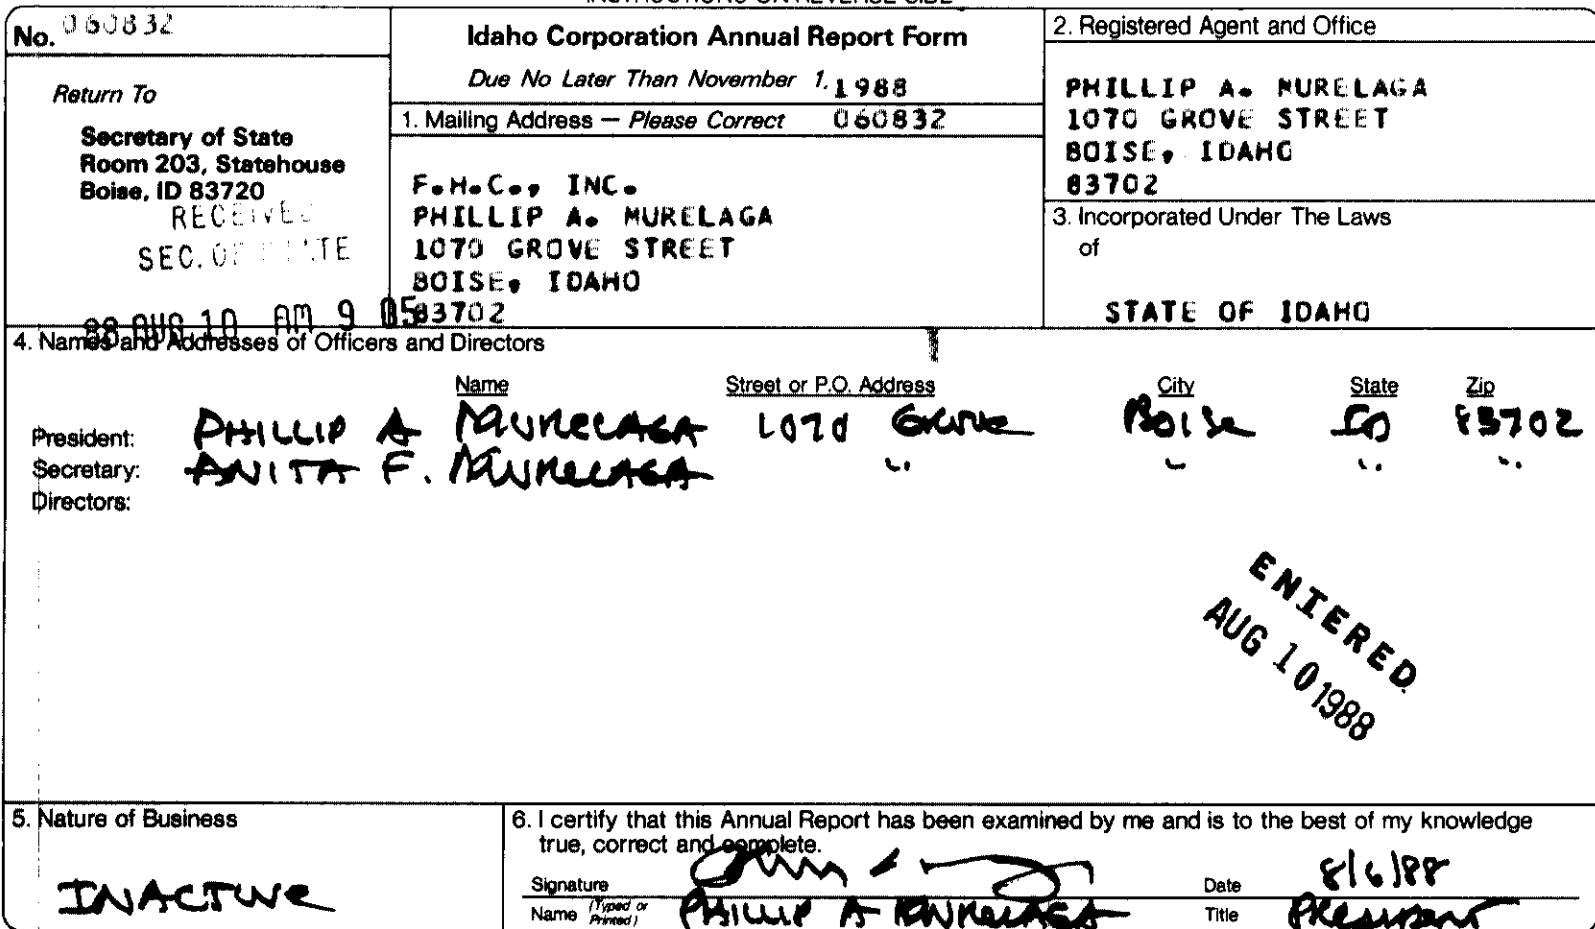 INSTRUCTIONS ON REVERSE SIDE
No. 060832
Return To
Secretary of State
Room 203, Statehouse
Boise, ID 83720
RECEIVED
SEC. OF STATE
88 AUG 10 AM 9 05
Idaho Corporation Annual Report Form
Due No Later Than November 1, 1988
1. Mailing Address — Please Correct 060832
F.H.C., INC.
PHILLIP A. MURELAGA
1070 GROVE STREET
BOISE, IDAHO
83702
2. Registered Agent and Office
PHILLIP A. MURELAGA
1070 GROVE STREET
BOISE, IDAHO
83702
3. Incorporated Under The Laws
of
STATE OF IDAHO
4. Names and Addresses of Officers and Directors
Name Street or P.O. Address City State Zip
President: PHILLIP A MURELAGA 1070 GROVE BOISE ID 83702
Secretary: ANITA F. MURELAGA " " " "
Directors:
ENTERED
AUG 10 1988
5. Nature of Business
INACTIVE
6. I certify that this Annual Report has been examined by me and is to the best of my knowledge
true, correct and complete.
Signature Date 8/6/88
Name (Typed or Printed) PHILLIP A MURELAGA Title PRESIDENT